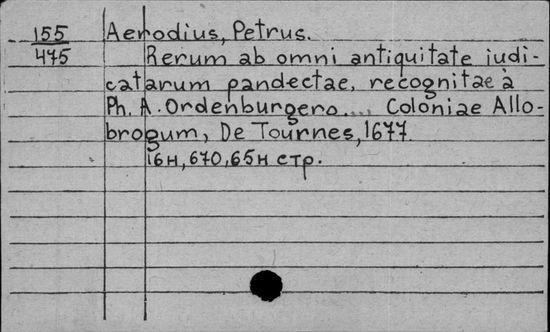 155 Aerodius, Petrus.
475 Rerum ab omni antiquitate iudi-
catarum pandectae, recognitae à
Ph. A. Ordenburgero.... Coloniae Allo-
brogum, De Tournes, 1677.
16н, 670, 65н стр.